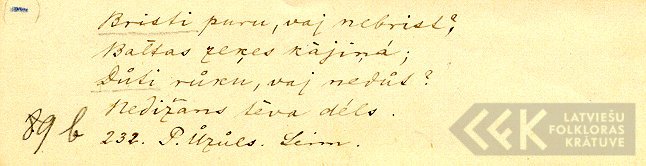 Bristi puru, vaj nebrist?
Baltas zeķes kājiņá;
Důti růku, vaj nedůt?
Nedižans tēva dēls.
89 b
232. P. Ůzůls. Leim.
LATVIEŠU
FOLKLORAS
KRĀTUVE